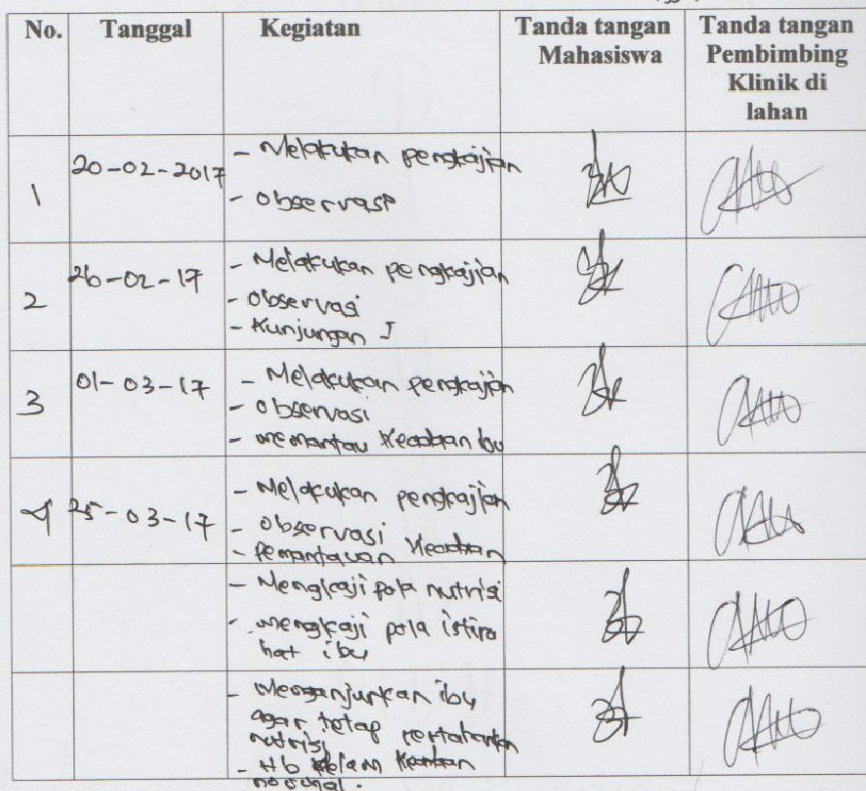 No. Tanggal Kegiatan Tanda tangan Mahasiswa Tanda tangan Pembimbing Klinik di lahan
1 20-02-2017 - Melakukan pengkajian
- Observasi
2 26-02-17 - Melakukan pengkajian
- Observasi
- Kunjungan I
3 01-03-17 - Melakukan pengkajian
- Observasi
- memantau Keadaan ibu
4 25-03-17 - Melakukan pengkajian
- Observasi
- Pemantauan Keadaan
- Mengkaji pola nutrisi
- mengkaji pola istira
hat ibu
- Menganjurkan ibu
agar tetap pertahankan
nutrisi
- Hb dalam Keadaan
normal.